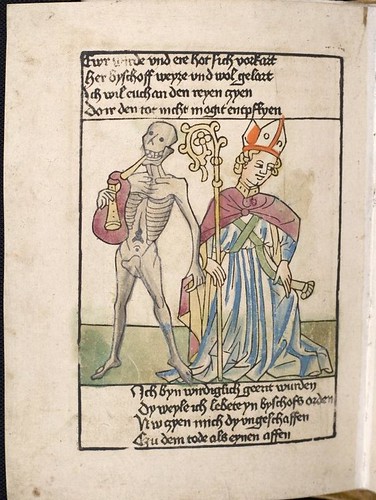 Ewr wirde vnd ere hot sich vorkart
Her byschoff weyze vnd wol gelart
Ich wil euch an den reyen czyen
Do ir den tot nicht mogit entpflyen
Ich byn wirdiglich geert wurden
Dy weyle ich lebete yn byschofs orden
Nw czyen mich dy vngeschaffen
Czu dem tode als eynen affen